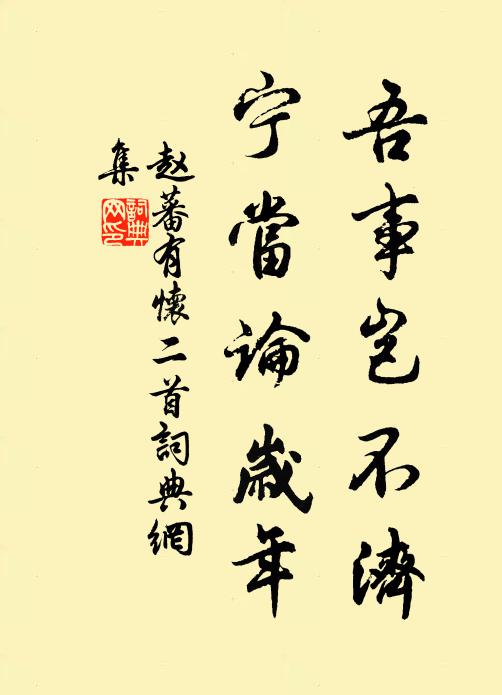 吾事岂不濟
宁當論歲年
赵蕃有懷二首詞典網
集
詞典網印